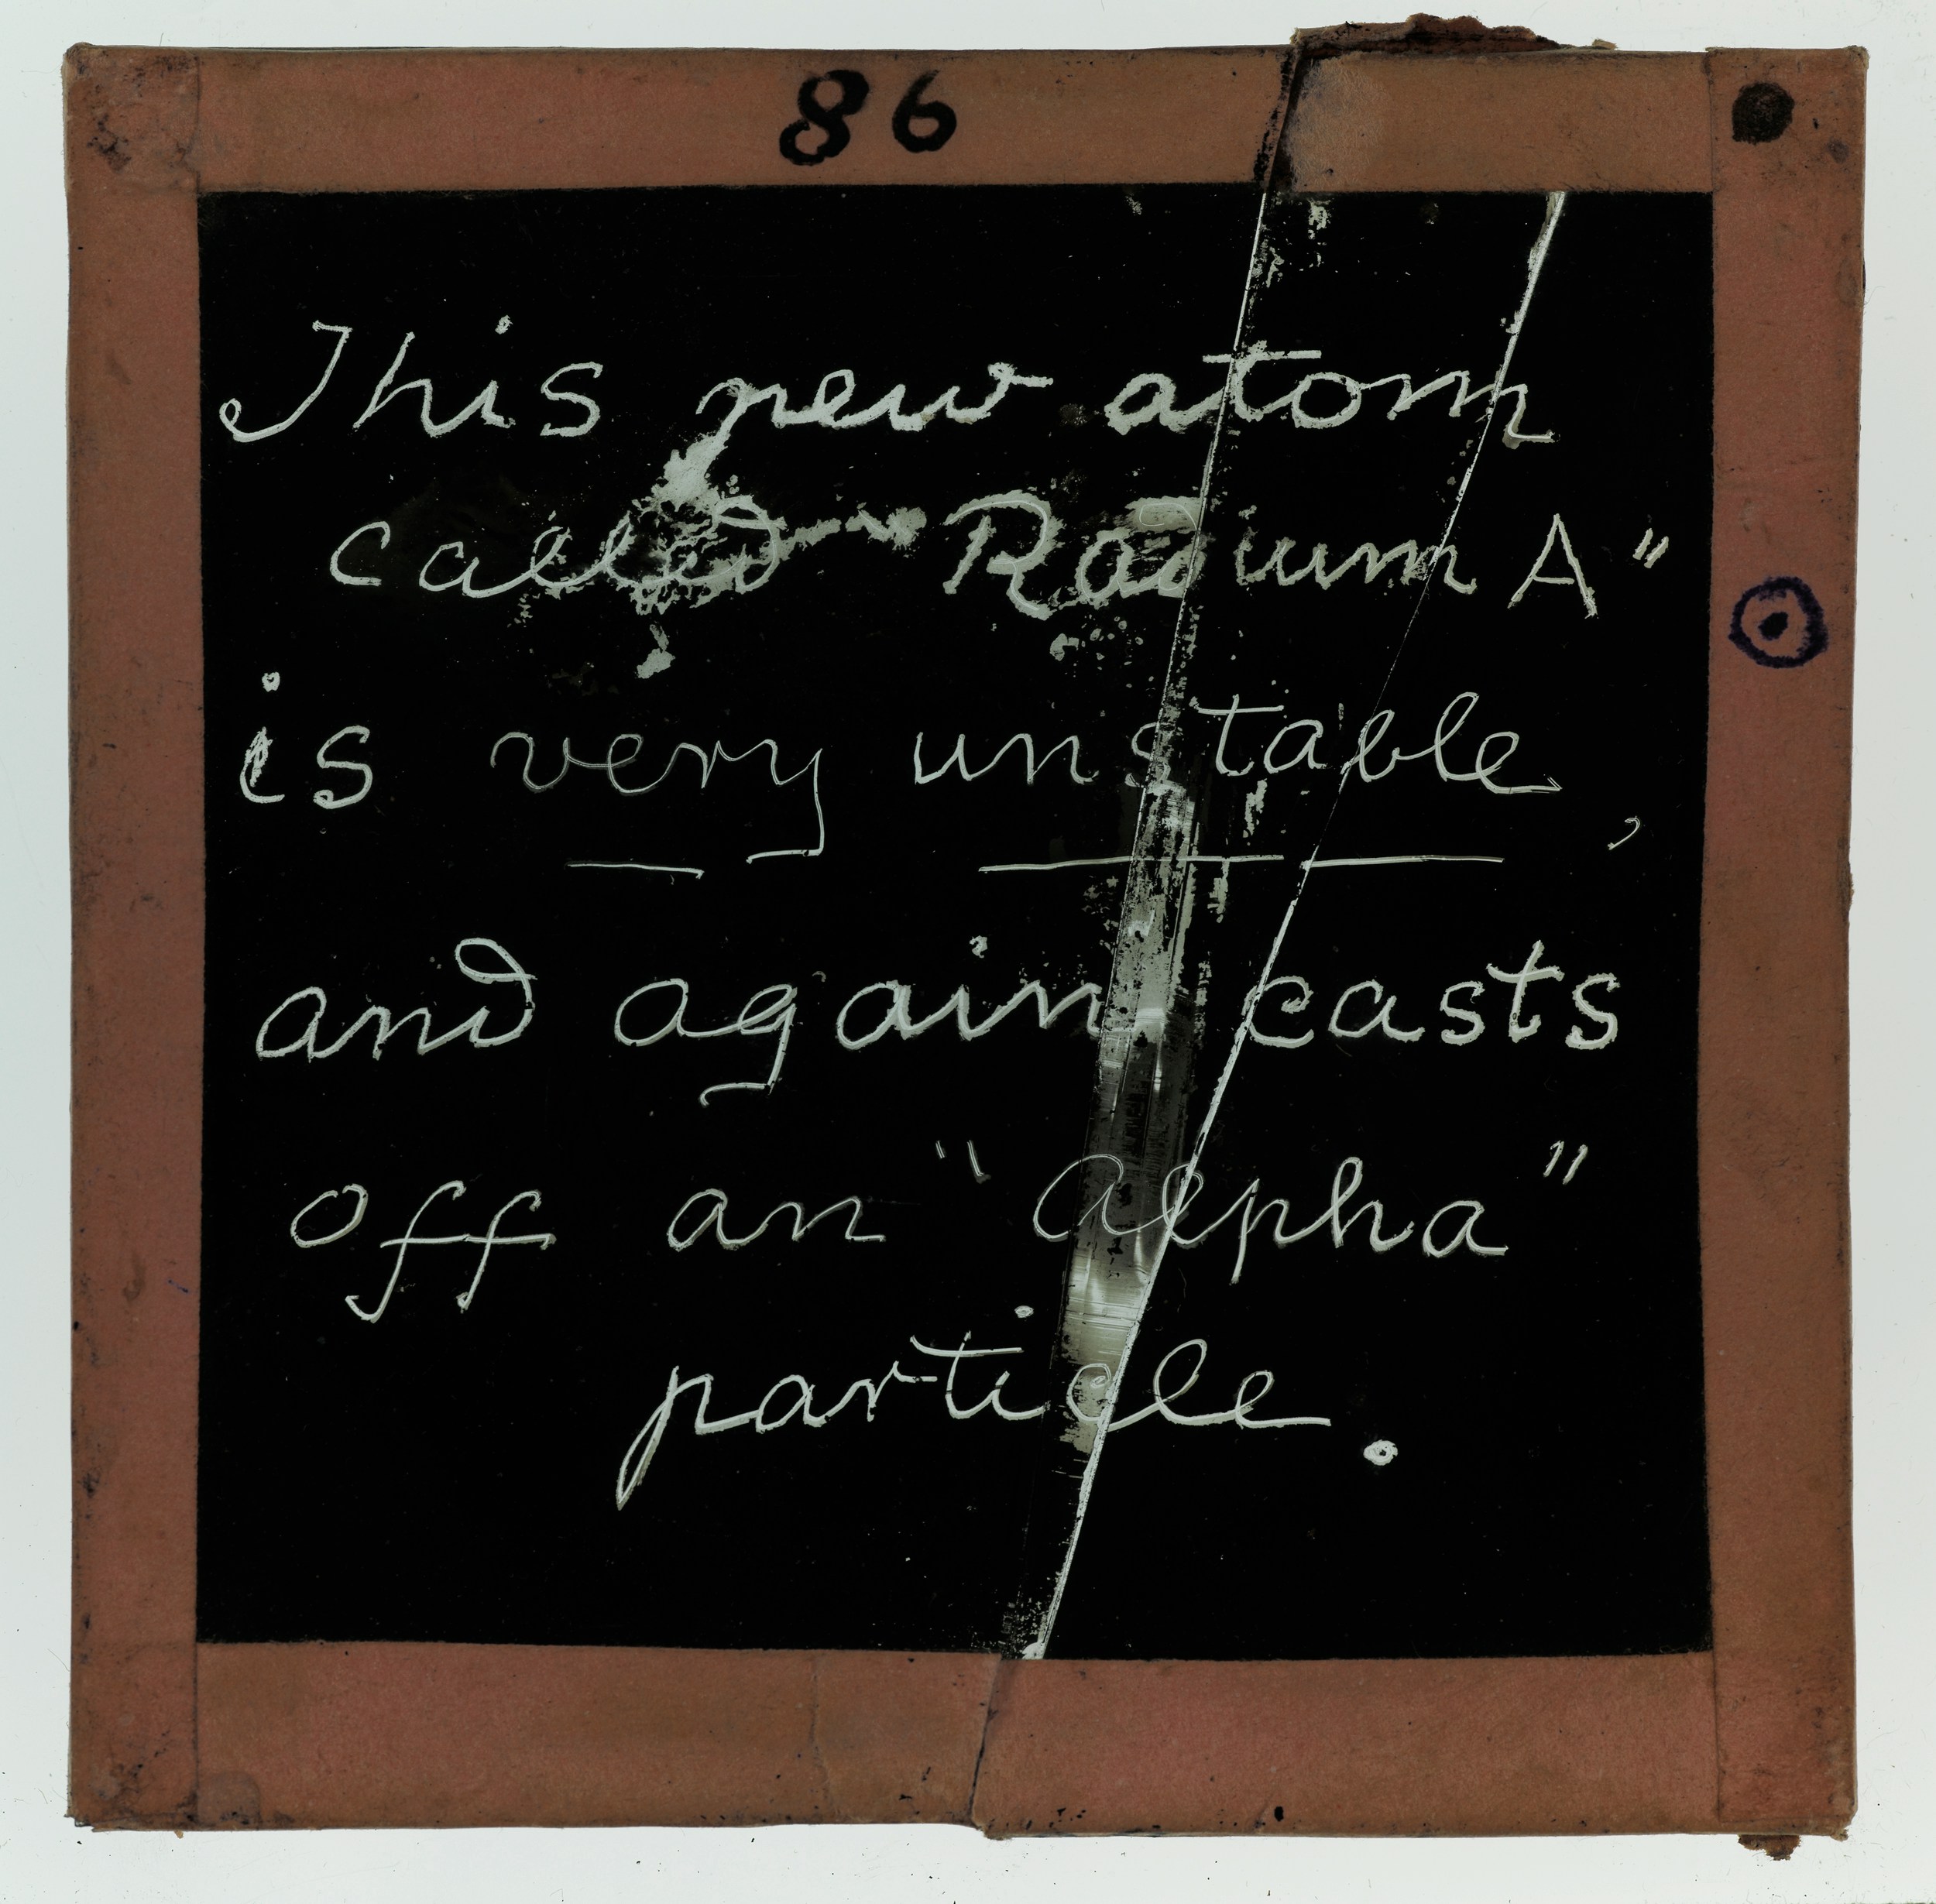 86
This new atom
called "Radium A"
is very unstable,
and again casts
off an "alpha"
particle.